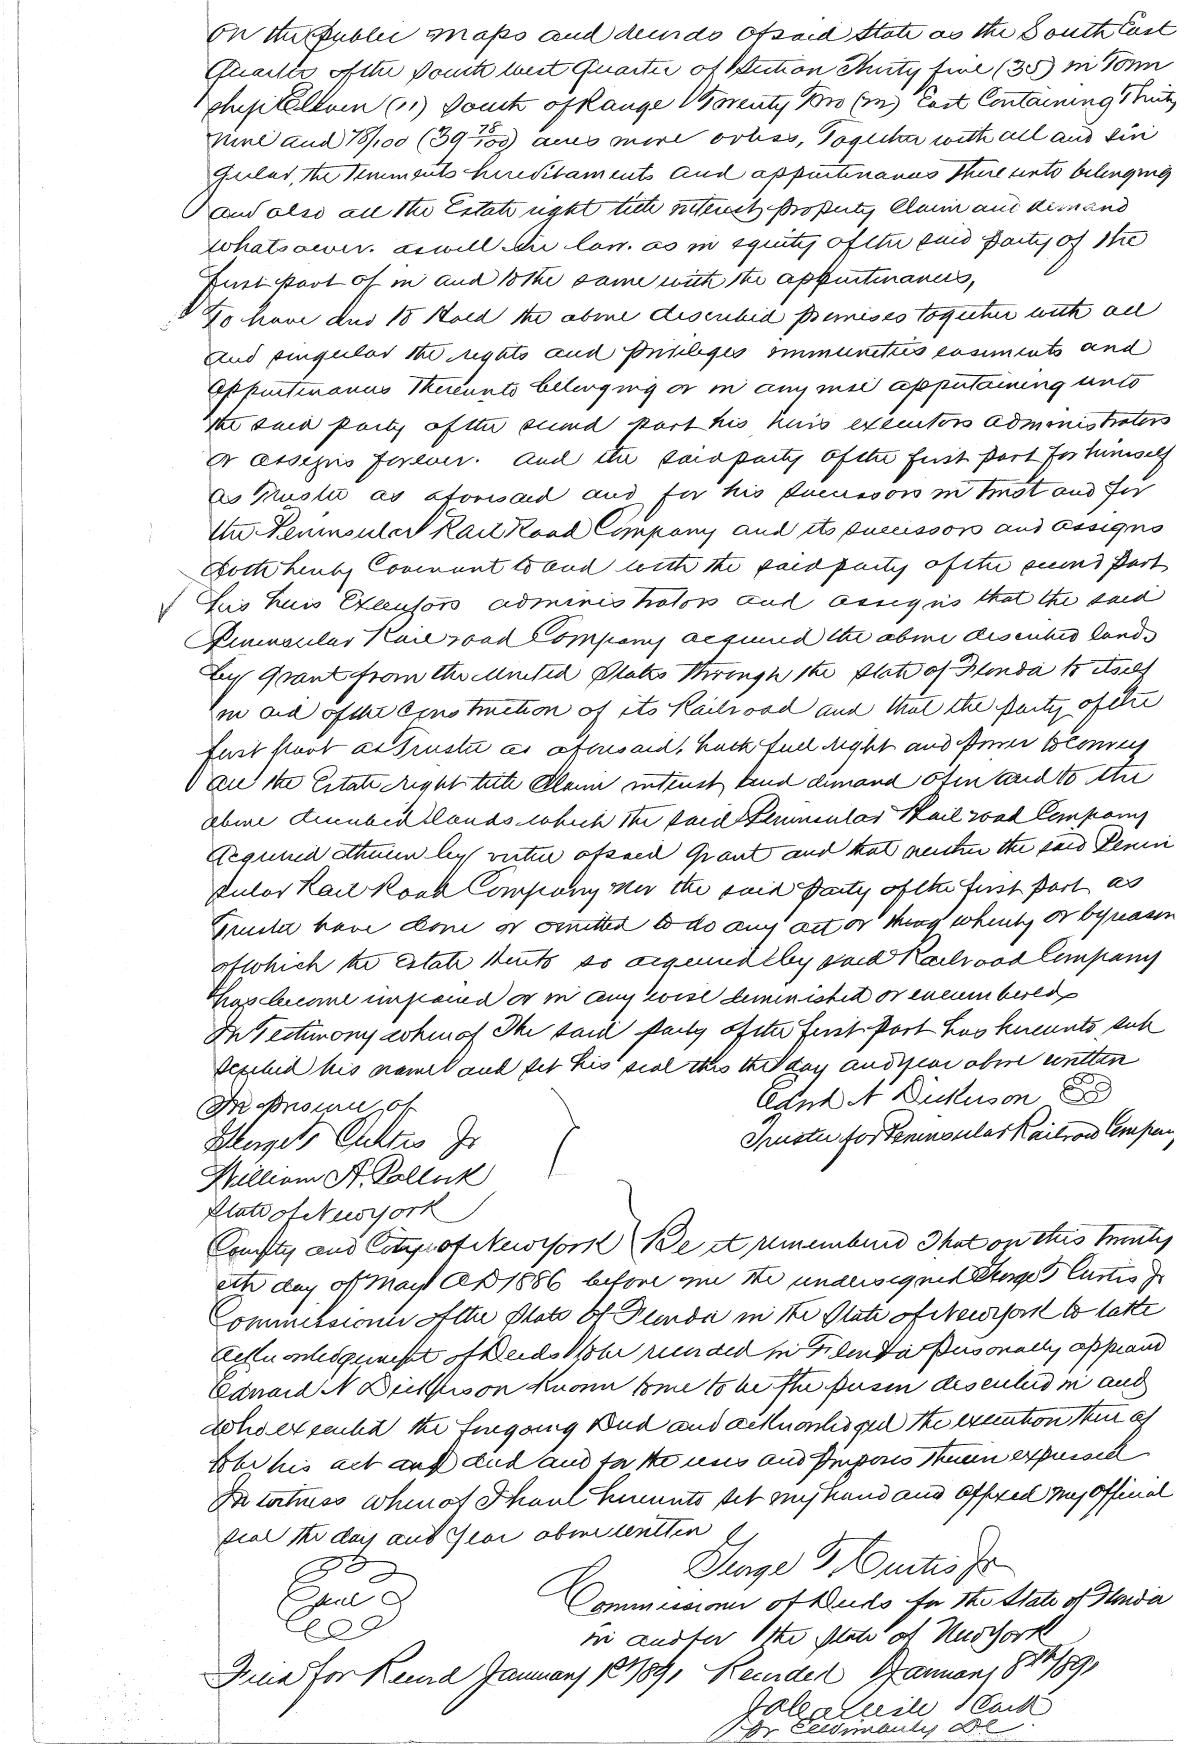 On the public maps and deeds of said State as the South East
Quarter of the South West Quarter of Section Thirty five (35) in Town
ship Eleven (11) South of Range Twenty Two (22) East Containing Thirty
nine and 78/100 (39 78/100) acres more or less, Together with all and sin
gular, the tenements hereditaments and appurtenances thereunto belonging
and also all the Estate right title interest property Claim and demand
whatsoever. as well in law. as in equity of the said party of the
first part of in and to the same with the appurtenances,
To have and to Hold the above described premises together with all
and singular the rights and privileges immunities easments and
appurtenances thereunto belonging or in any wise appertaining unto
the said party of the second part his heirs executors administrators
or assigns forever. and the said party of the first part for himself
as Trustee as aforesaid and for his successors in trust and for
the Peninsular Rail Road Company and its successors and assigns
doth hereby Covenant to and with the said party of the second part
his heirs Executors administrators and assigns that the said
Peninsular Rail road Company acquired the above described lands
by grant from the United States through the State of Florida to itself
in aid of the construction of its Railroad and that the party of the
first part as Trustee as aforesaid, hath full right and power to convey
all the Estate right title Claim interest and demand of in and to the
above described lands which the said Peninsular Rail road Company
acquired therein by virtue of said grant and that neither the said Penin
sular Rail Road Company nor the said party of the first part as
Trustee have done or omitted to do any act or thing whereby or by reason
of which the Estate thereto so acquired by said Railroad Company
has become impaired or in any wise diminished or encumbered
In Testimony whereof The said party of the first part has hereunto sub
scribed his name and set his seal this the day and year above written
In presence of
Edwd N Dickerson
George T Curtis Jr
Trustee for Peninsular Railroad Company
William A. Pollock
State of New york
County and City of New York } Be it remembered That on this twenty
eth day of May AD 1886 before me the undersigned George T Curtis Jr
Commissioner of the State of Florida in the State of New york to take
acknowledgement of Deeds to be recorded in Florida personally appeared
Edward N Dickerson known to me to be the person described in and
who executed the foregoing Deed and acknowledged the execution there of
to be his act and deed and for the uses and purposes therein expressed
In witness whereof I have hereunto set my hand and affixed my official
seal the day and year above written
George T Curtis Jr
Seal
Commissioner of Deeds for the State of Florida
in and for the State of New York
Filed for Record January 1st 1891 Recorded January 8th 1891
Clerk